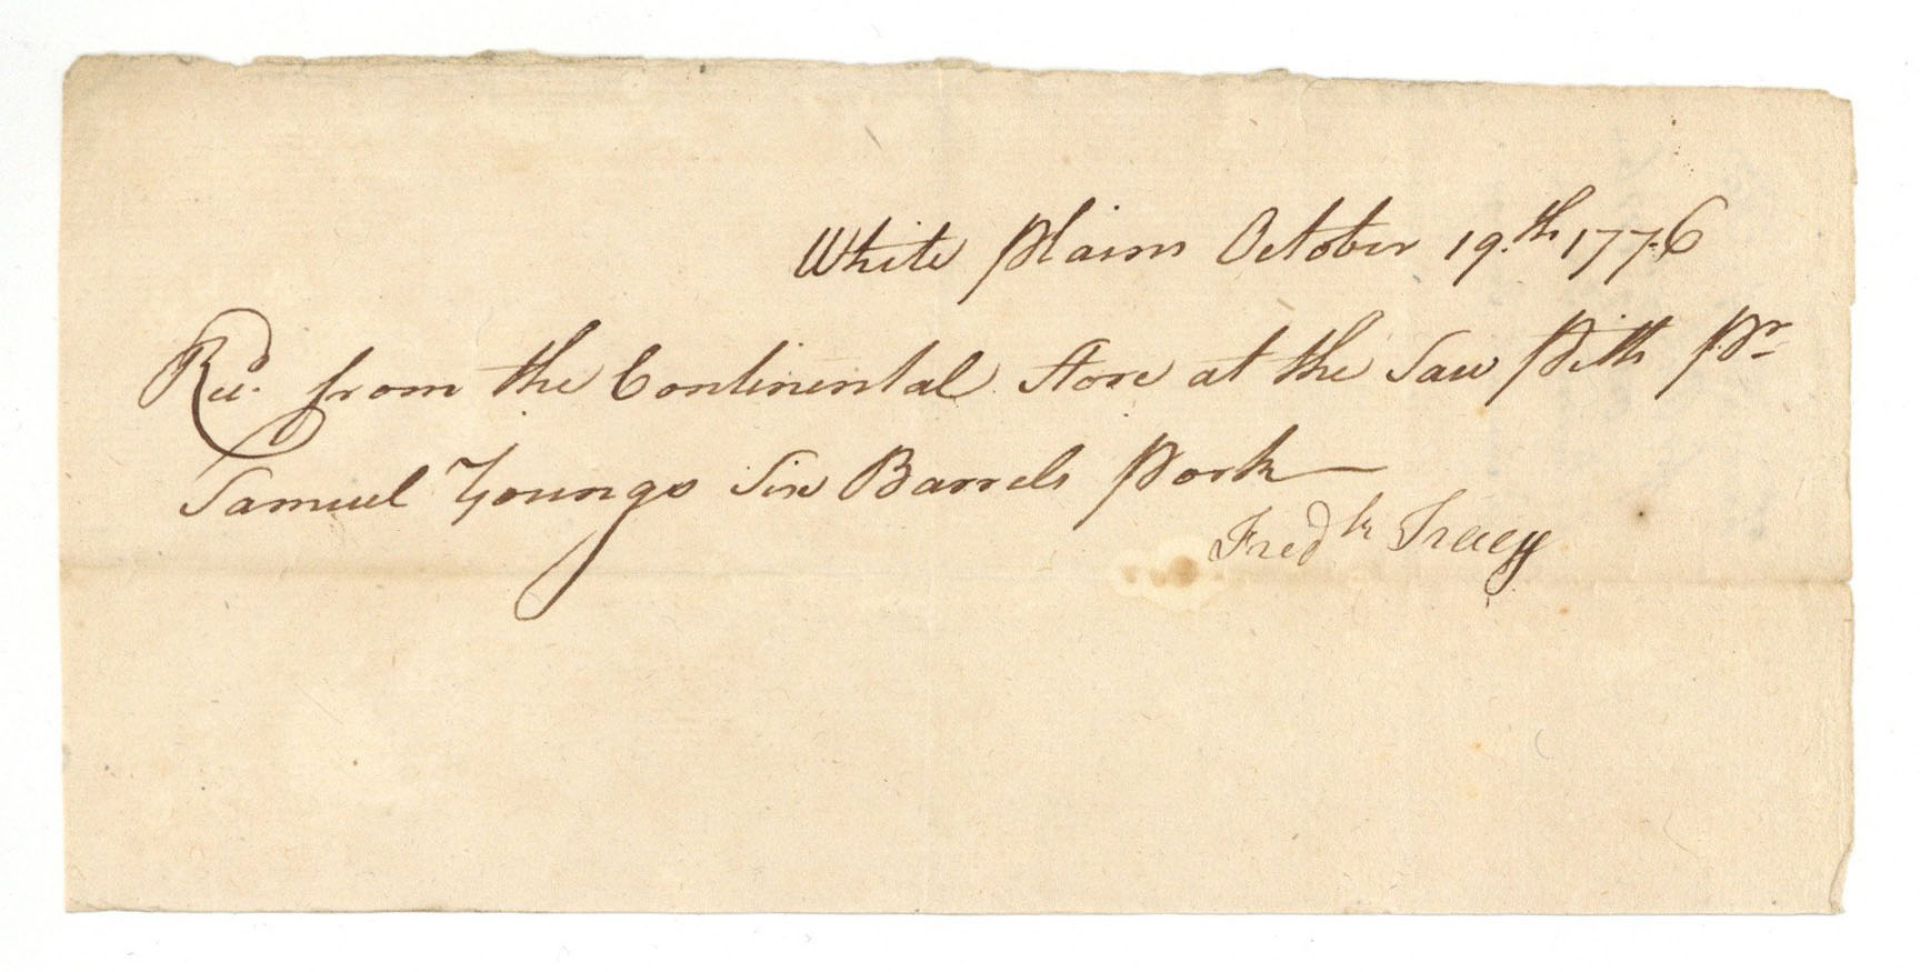 White Plains October 19.th 1776
Recd. from the Continental Store at the Saw Pitts Pr
Samuel Youngs Six Barrels Pork
Fredk Tracy